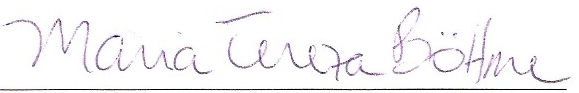 Maria Tereza Böhme